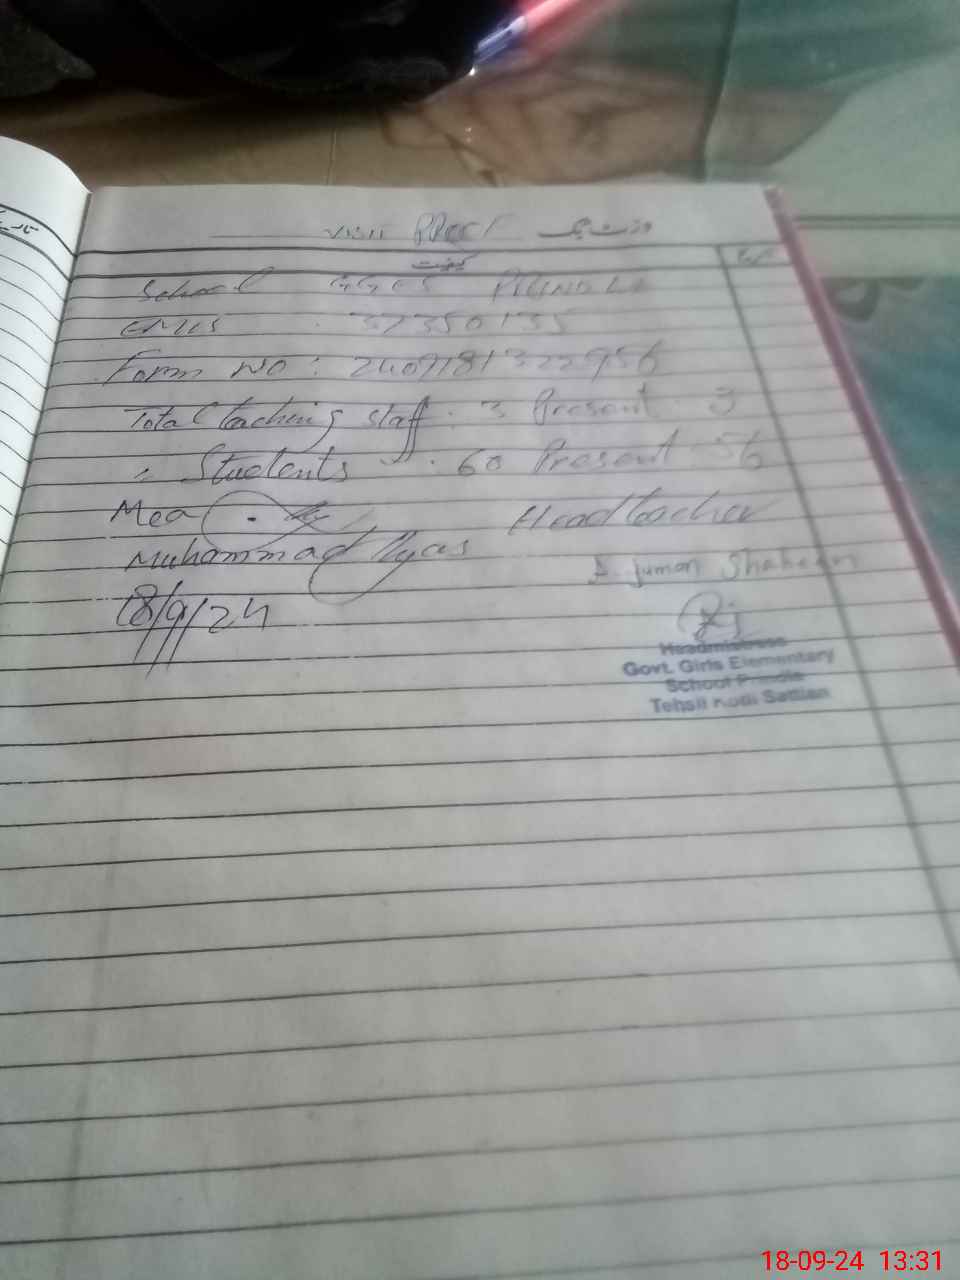 وزٹ بک
کیفیت
School GGES PRINDLA
EMIS : 37350135
Form NO : 2409181322956
Total teaching staff : 3 Present 3
" Students " : 60 Present 56
Mea Headteacher
Muhammad Ilyas
Anjuman Shaheen
18/9/24
Headmistress
Govt. Girls Elementary
School Prindla
Tehsil Kotli Sattian
18-09-24 13:31